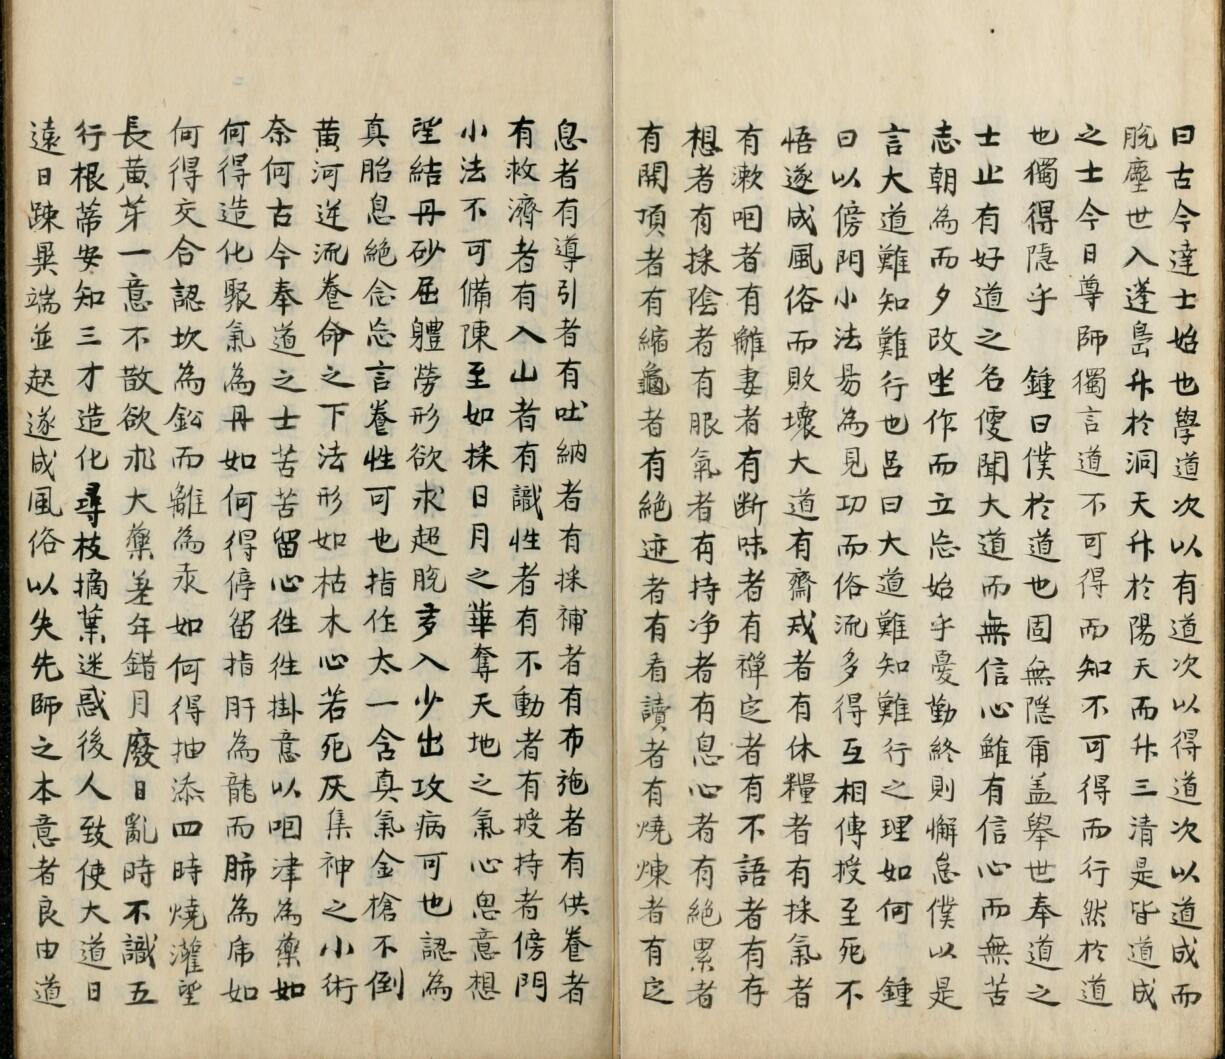 曰古今達士始也學道次以有道次以得道次以道成而
脫塵世入蓬島升於洞天升於陽天而升三清是皆道成
之士今日尊師獨言道不可得而知不可得而行然於道
也獨得隱乎　鍾曰僕於道也固無隱爾盖舉世奉道之
士止有好道之名使聞大道而無信心雖有信心而無苦
志朝為而夕改坐作而立忘始乎憂勤終則懈怠僕以是
言大道難知難行也吕曰大道難知難行之理如何　鍾
曰以傍門小法易為見功而俗流多得互相傳授至死不
悟遂成風俗而敗壞大道有齋戒者有休糧者有採氣者
有漱咽者有離妻者有断味者有禪定者有不語者有存
想者有採陰者有服氣者有持净者有息心者有絶累者
有開頂者有縮龜者有絶迹者有看讀者有燒煉者有定
息者有導引者有吐納者有採補者有布施者有供養者
有救濟者有入山者有識性者有不動者有授持者傍門
小法不可備陳至如採日月之華奪天地之氣心思意想
望結丹砂屈體勞形欲求超脫多入少出攻病可也認為
真胎息絶念忘言養性可也指作太一含真氣金槍不倒
黄河逆流養命之下法形如枯木心若死灰集神之小術
奈何古今奉道之士苦苦留心徃徃掛意以咽津為藥如
何得造化聚氣為丹如何得停留指肝為龍而肺為虎如
何得交合認坎為鈆而離為汞如何得抽添四時燒灌望
長黄芽一意不散欲求大藥差年錯月廢日亂時不識五
行根蒂安知三才造化尋枝摘葉迷惑後人致使大道日
遠日踈異端並起遂成風俗以失先師之本意者良由道